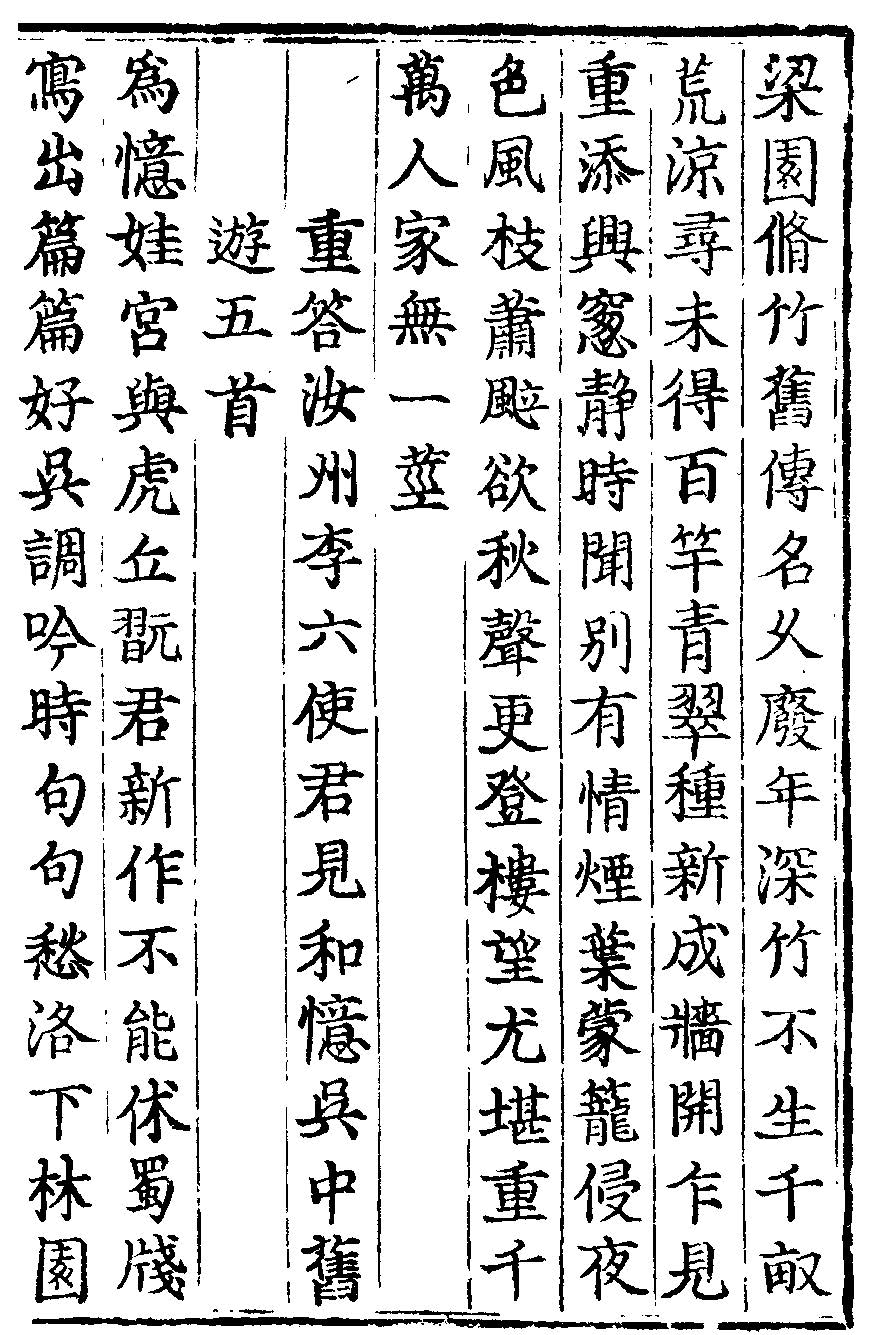 梁園脩竹舊傳名久廢年深竹不生千畝
荒涼尋未得百竿青翠種新成牆開乍見
重添興窻静時聞别有情煙葉蒙籠侵夜
色風枝蕭颭欲秋聲更登樓望尤堪重千
萬人家無一莖
重答汝州李六使君見和憶吳中舊
遊五首
為憶娃宮與虎丘翫君新作不能休蜀牋
寫出篇篇好吳調吟時句句愁洛下林園